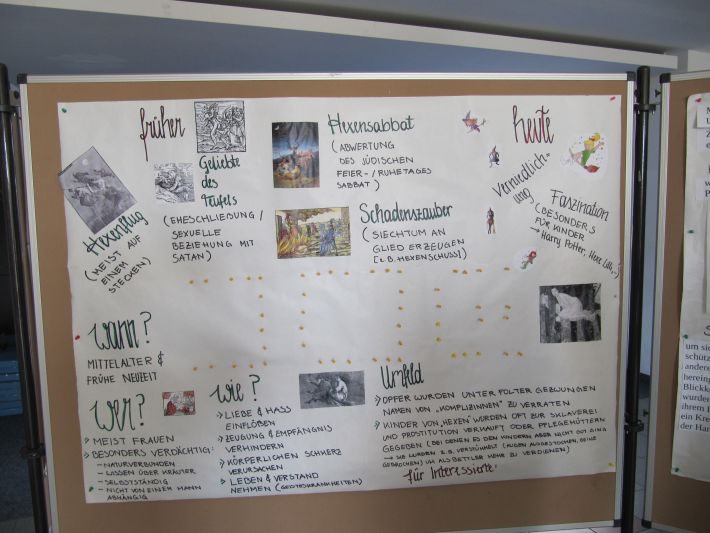 früher
Geliebte
des
Teufels
(EHESCHLIEßUNG /
SEXUELLE
BEZIEHUNG MIT
SATAN)
Hexenflug
(MEIST AUF
EINEM
STECKEN)
Hexensabbat
(ABWERTUNG
DES JÜDISCHEN
FEIER-/RUHETAGES
SABBAT)
Schadenszauber
(SIECHTUM AN
GLIED ERZEUGEN
[z.B. HEXENSCHUSS])
heute
Verniedlich-
ung
Faszination
(BESONDERS
FÜR KINDER
→ Harry Potter, Hexe Lilli,
wann?
MITTELALTER &
FRÜHE NEUZEIT
wer?
» MEIST FRAUEN
» BESONDERS VERDÄCHTIG:
- NATURVERBUNDEN
- WISSEN ÜBER KRÄUTER
- SELBSTSTÄNDIG
- NICHT VON EINEM MANN
ABHÄNGIG
wie?
» LIEBE & HASS
EINFLÖßEN
» ZEUGUNG & EMPFÄNGNIS
VERHINDERN
» KÖRPERLICHEN SCHMERZ
VERURSACHEN
» LEBEN & VERSTAND
NEHMEN (GEISTESKRANKHEITEN)
Umfeld
» OPFER WURDEN UNTER FOLTER GEZWUNGEN
NAMEN VON „KOMPLIZINNEN" ZU VERRATEN
» KINDER VON „HEXEN" WURDEN OFT ZUR SKLAVEREI
UND PROSTITUTION VERKAUFT ODER PFLEGEMÜTTERN
GEGEBEN (BEI DENEN ES DEN KINDERN ABER NICHT GUT GING
→ SIE WURDEN z.B. VERSTÜMMELT (AUGEN AUSGESTOCHEN, BEINE
GEBROCHEN) UM ALS BETTLER MEHR ZU VERDIENEN)
für Interessierte:
um sic
schütz
ander
herein
Blickk
wurde
ihrem
ein Kre
der Har